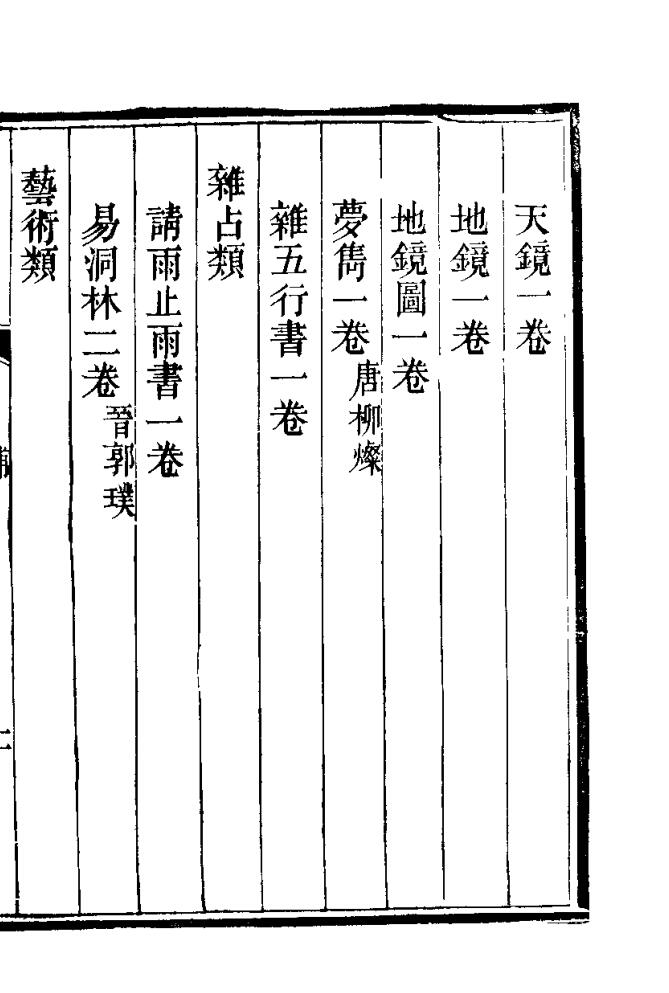 天鏡一卷
地鏡一卷
地鏡圖一卷
夢雋一卷唐柳燦
雜五行書一卷
雜占類
請雨止雨書一卷
易洞林二卷晉郭璞
藝術類